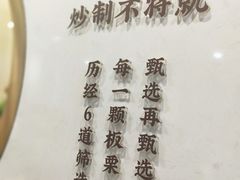 炒制不将就
甄选再甄选
每一颗板栗
历经6道筛选